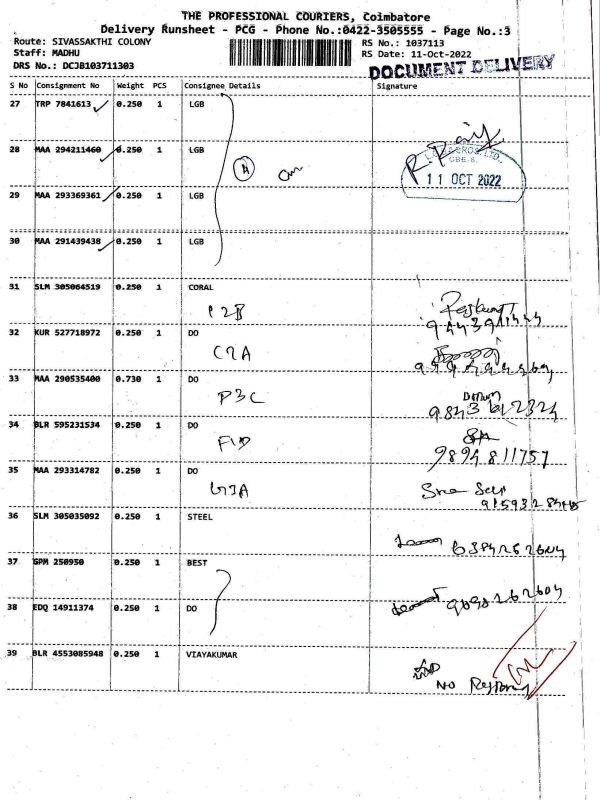 THE PROFESSIONAL COURIERS, Coimbatore
Delivery Runsheet - PCG - Phone No.:0422-3505555 - Page No.:3
Route: SIVASSAKTHI COLONY RS No.: 1037113
Staff: MADHU RS Date: 11-Oct-2022
DRS No.: DCJB103711303 DOCUMENT DELIVERY
S No Consignment No Weight PCS Consignee Details Signature
27 TRP 7841613 0.250 1 LGB
28 MAA 294211460 0.250 1 LGB
A
CBE-6.
11 OCT 2022
29 MAA 293369361 0.250 1 LGB
30 MAA 291439438 0.250 1 LGB
31 SLM 305064519 0.250 1 CORAL
12B
32 KUR 527718972 0.250 1 DO
C7A
33 MAA 290535400 0.730 1 DO
P3C
34 BLR 595231534 0.250 1 DO
F1D
9894811757
35 MAA 293314782 0.250 1 DO
G3A
36 SLM 305035092 0.250 1 STEEL
37 GPM 250950 0.250 1 BEST
38 EDQ 14911374 0.250 1 DO
39 BLR 4553085948 0.250 1 VIAYAKUMAR
NO